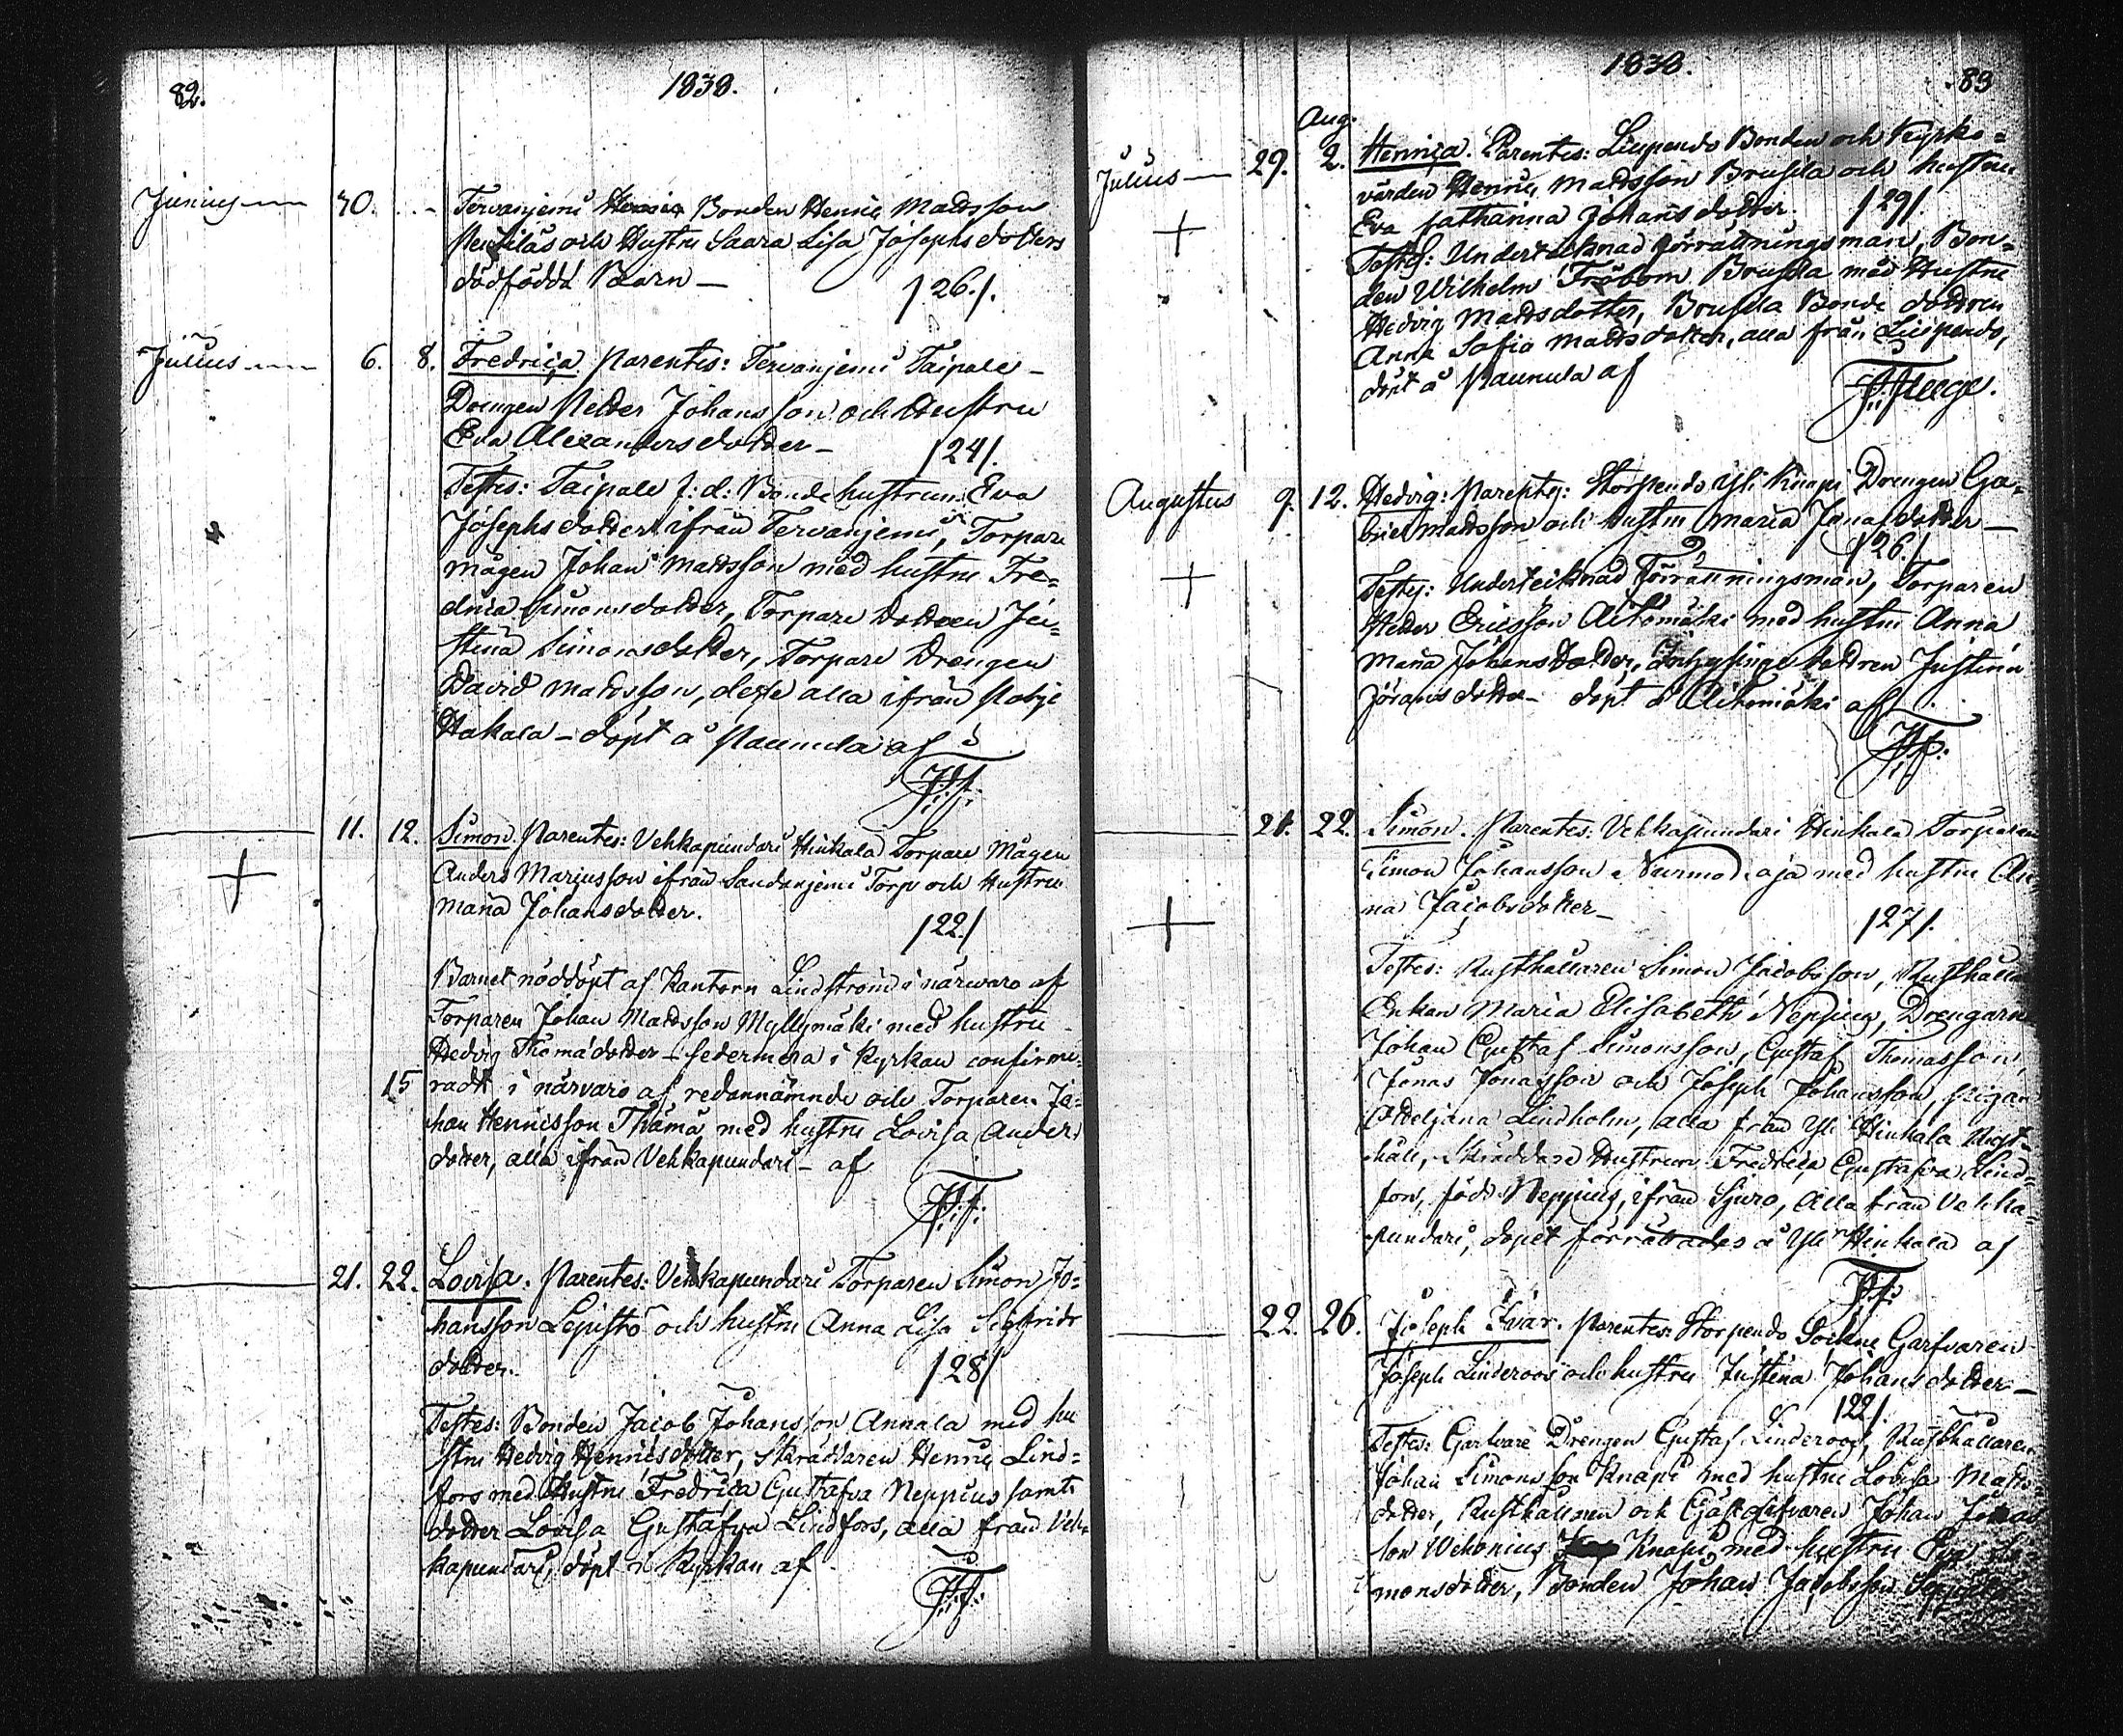 82.
1838.
Junius — 30. -
Tervanjemi Bonden Henric Mattsson
Penttiläs och Hustru Saara Lisa Josephsdotters
dödfödda Barn —
/26./.
Julius — 6. 8. Fredrica. Parentes: Tervanjemi Taipale
Drengen Petter Johansson och Hustru
Eva Alexandersdotter —
/24/.
Testes: Taipale f:d: Bonde hustrun Eva
Josephsdotter ifrån Tervanjemi, Torpare
mågen Johan Mattsson med hustru Fre=
drica Simonsdotter, Torpare Dottren Ju=
stina Simonsdotter, Torpare Drengen
David Mattsson, desse alla ifrån
Hakala — döpt å Paunula af
11. 12. Simon. Parentes: Vehkapundari Hinkala Torpare Mågen
Anders Mariusson ifrån Sandanjemi Torp och Hustru
Maria Johansdotter.
/22./
Barnet nöddöpt af Kantorn Lindström i närwaro af
Torparen Johan Mattsson Myllymäki med hustru
Hedvig Thomädotter — sedermera i Kyrkan confirme=
15 radt i närvaro af redannämnde och Torparen Jo=
han Henricsson Thämä med hustru Lovisa Anders
dotter, alla ifrån Vehkapundari — af
21. 22. Lovisa. Parentes: Vehkapundari Torparen Simon Jo=
hansson Lepistö och hustru Anna Lisa Sigfrids
dotter.
/28/
Testes: Bonden Jacob Johansson Annala med hu
stru Hedvig Henricsdotter, Skräddaren Henric Lind=
fors med Hustru Fredrica Gustafva Neppius samt
dotter Lovisa Gustafva Lindfors, alla från Veh=
kapundari, döpt i Kyrkan af
1838.
83
Aug.
Julius — 29. 2. Henrica. Parentes: Liuspendo Bonden och Kyrko=
värden Henric Mattsson Brusila och hustru
Eva Catharina Johansdotter.
/29/.
Testes: Undertecknad förrättningsman, Bon=
den Wilhelm Fröbom Brusila med Hustru
Hedvig Mattsdotter, Brusila Bonde dottren
Anna Sofia Mattsdotter, alla från Liuspendo,
döpt å Paunula af
Augustus 9. 12. Hedvig: Parentes: Storpendo Yli Knapi Drengen Ga=
briel Mattsson och hustru Maria Jonasdotter —
/26./
Testes: Undertecknad Förrättningsman, Torparen
Petter Ericsson Aitomäki med hustru Anna
Maria Johansdotter, Inhysinge dottren Justina
Jöransdotter — döpt å Aitomäki af
21. 22. Simon. Parentes: Vehkapundari Hinkala Torparen
Simon Johansson Nurmo aja med hustru An
na Jacobsdotter —
/27/.
Testes: Rusthållaren Simon Jacobsson, Rusthålla
Enkan Maria Elisabeth Neppius, Drengarne
Johan Gustaf Simonsson, Gustaf Thomasson,
Jonas Jonasson och Joseph Johansson, pigan
Lindholm, alla från Yli Hinkala Rust=
håll, Skräddare Hustrun Fredrica Gustafva Lind=
fors, född Neppius, ifrån Sjuro, alla från Vehka=
pundari, dopet förrättades å Yli Hinkala af
22. 26. Joseph Ivar. Parentes: Storpendo Sockne Garfvaren
Joseph Linderoos och hustru Justina Johansdotter —
/22/.
Testes: Garfvare Drengen Gustaf Linderoos, Rusthållaren
Johan Simonsson Knapi med hustru Lovisa Matts
dotter, Rusthållaren och Gästgifvaren Johan Jonas
son Wehonius Knapi med hustru Eva Si
monsdotter, Bonden Johan Jacobsson